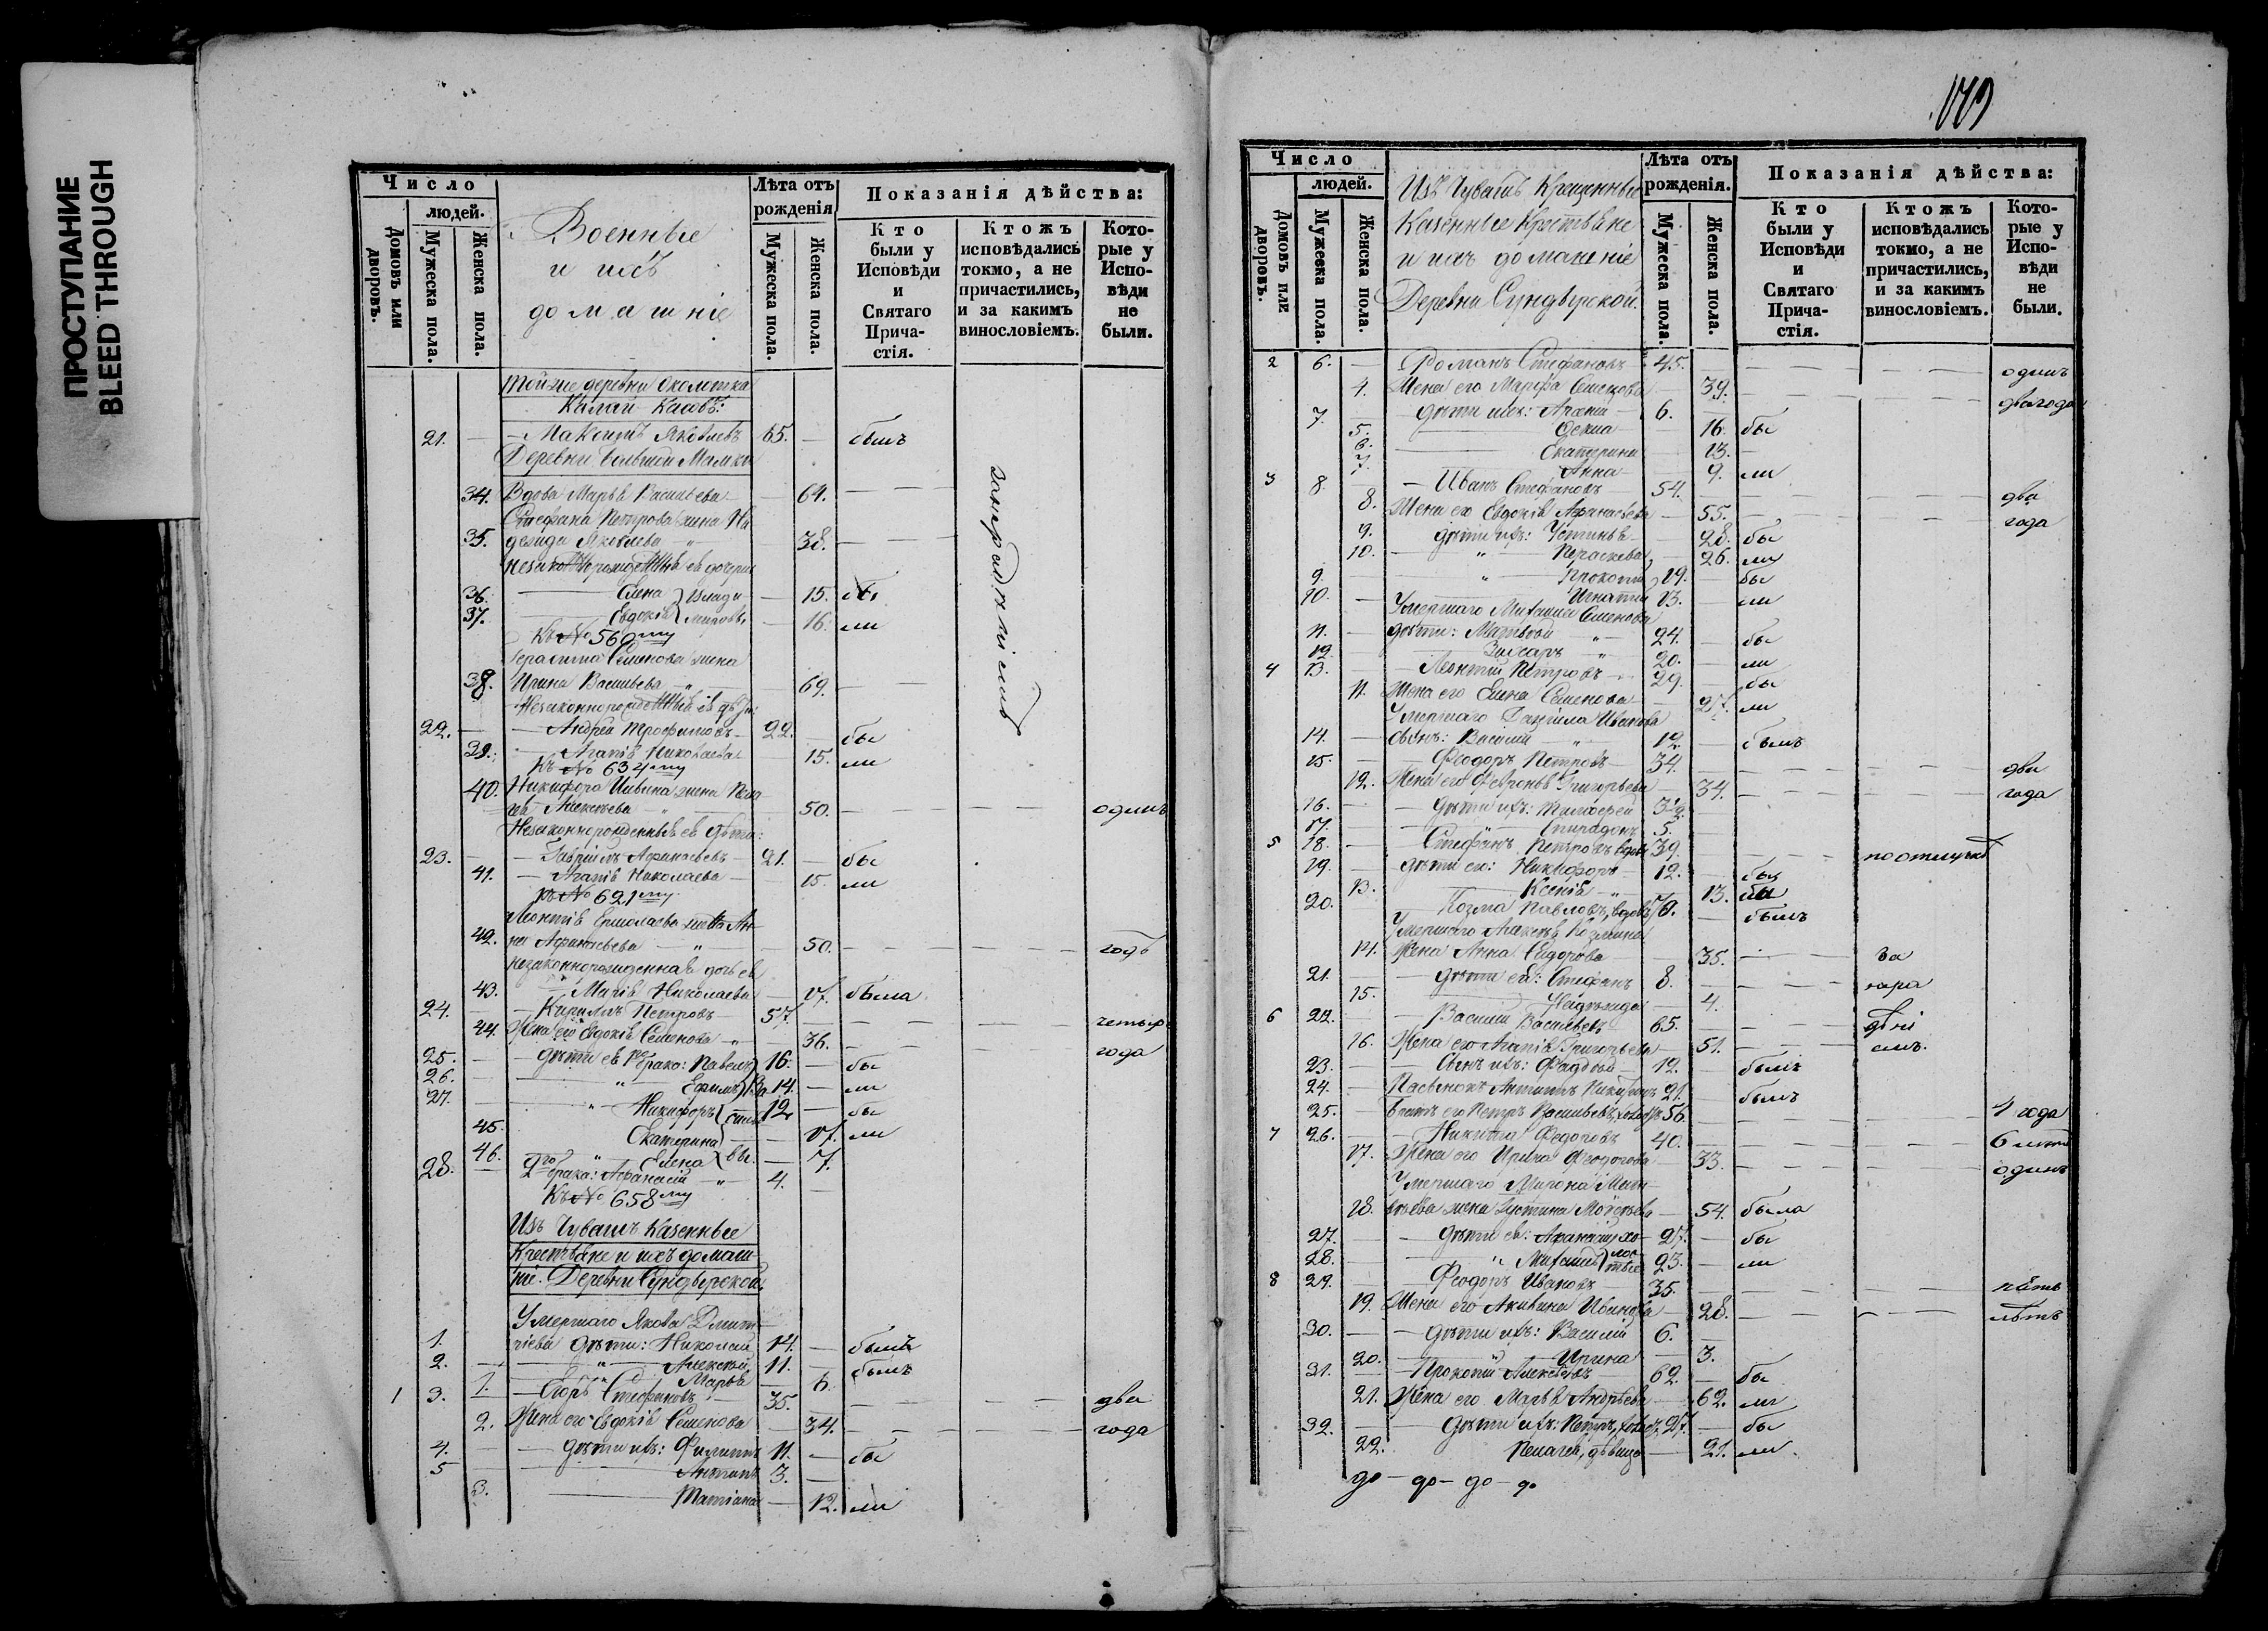 ПРОСТУПАНИЕ
BLEED THROUGH
Число
людей.
Домовъ или дворовъ.
Мужеска пола.
Женска пола.
Военные
и ихъ
домашніе
Лѣта отъ рожденія
Мужеска пола.
Женска пола.
Показанія дѣйства:
Кто были у Исповѣди и Святаго Причастія.
Ктожъ исповѣдались токмо, а не причастились, и за какимъ винословіемъ.
Которые у Исповѣди не были.
Той же деревни Околотка
21. — Яковлевъ 65. — былъ
Деревни
34. Вдова Марья Васильева — 64. — —
Стефана Петрова жена На
35. дежда Яковлева — 38. — —
ея дочери
36. Елена — 15. бы
37. Евдокія — 16. ли
Къ № 560му
Герасима Семенова жена
38. Ирина Васильева — 69. —
22. — Андрей Трофимовъ 22. — бы
39. Агапія Николаева — 15. ли
Къ № 634му
40. Никифора жена Пела
гея Алексѣева — 50. — — одинъ
Незаконнорожденныя ея дѣти:
23. — Гавріилъ Афанасьевъ — 21. — бы
41. — Агапія Николаева — 15. ли
Къ № 621му
Леонтія Ермолаева жена Ан
42. на Афанасьева — 50. — — — годъ
Незаконнорожденная дочь ея
43. Марія Николаева — 17. была
24. — Кириллъ Петровъ — 57. — — — четыре
44. Жена его Евдокія Семенова — 36. — — года
25. — дѣти ея 1го брака: Павелъ 16. — бы
26. — Ефимъ 14. — ли
27. — Никифоръ 12 — бы
45. Екатерина — 17. ли
46. Елена — 7.
28. 2го брака: Афанасій 4. —
Къ № 658му
Изъ Чувашъ Казенные
Крестьяне и ихъ домаш-
ніе. Деревни Сундырской.
Умершаго Якова Дмит-
1. ріева дѣти: Николай 14. — былъ
2. — Алексѣй 11. — былъ
1. Марья — 6.
1 3. — Егоръ Стефановъ — 35. — — — два
2. Жена его Евдокія Семенова — 34. — — года
4. — дѣти ихъ: Филиппъ 11. — бы
5 Антипъ 3. —
3. Татіана — 12. ли
Число
людей.
Домовъ или дворовъ.
Мужеска пола.
Женска пола.
Изъ Чувашъ Крещенные
Казенные Крестьяне
и ихъ домашніе
Деревни Сундырской.
Лѣта отъ рожденія.
Мужеска пола.
Женска пола.
Показанія дѣйства:
Кто были у Исповѣди и Святаго Причастія.
Ктожъ исповѣдались токмо, а не причастились, и за какимъ винословіемъ.
Которые у Исповѣди не были.
2 6. — Романъ Стефановъ 45. — — — одинъ
4. Жена его Марфа Семенова — 39. — — два года
7. дѣти ихъ: 6. —
5. — 16. бы
6. Екатерина — 13. —
7. Анна — 9. ли
3 8. — Иванъ Стефановъ 54. — — два
8. Жена его Евдокія Афанасьева — 55. — — года
9. дѣти ихъ: Устинья — 28. бы
10. — Параскева — 26. ли
9. Прокопій 19. — бы
10. — Игнатій 13. — ли
Умершаго Михаила Семенова
11. — дѣти: Матвѣй 24. — бы
12 Захаръ 20. — ли
4 13. — Леонтій Петровъ 29. — бы
11. Жена его Елена Семенова — 27. ли
Умершаго Иванова
14. — сынъ: Василій 12. — былъ
15. — Феодоръ Петровъ — 34. — — два
12. Жена его Февронія Григорьева — 34. — — года
16. — дѣти ихъ: Тимофей 3½
17. Спиридонъ 5.
5 18. — Стефанъ Петровъ вдовъ 39. — — по отлучкѣ
19. — дѣти его: Никифоръ 12. — бы
13. Ксенія — 13. ли
20. Козма Павловъ, вдовъ 70. — былъ
Умершаго Алексѣя Козмина
14. Жена Анна Ѳедорова — 35. — за
21. дѣти ея: Стефанъ 8. — —
15. Надежда — 4.
6 22. — Василій Васильевъ 65. — —
16. Жена его Агапія Григорьева — 51. — —
23. — Сынъ ихъ: Фаддей 12. — былъ
24. — Пасынокъ Антипъ 21. — былъ
25. — Братъ его Петръ Васильевъ, холостъ 56. — — 4 года
7 26. — Никита Федоровъ 40. — — 6 лѣтъ
17. Жена его Ирина Феодорова — 33. — — одинъ
Умершаго Мирона Мат-
18. вѣева жена — 54. была
27. — дѣти ея: Афанасій хо- 27. — бы
28. — Михаилъ лостые 23. — ли
8 29. — Феодоръ Ивановъ — 35. — — пять
19. Жена его Акилина Иванова — 28. — — лѣтъ
30. — дѣти ихъ: Василій 6. —
20. Ирина — 3.
31. — Прокопій Алексѣевъ 62. — бы
21. Жена его Марья Андреева — 62. ли
32. — дѣти ихъ: Петръ, холостъ 27. — бы
22. Пелагея, дѣвица — 21. ли.
до — до — до — до